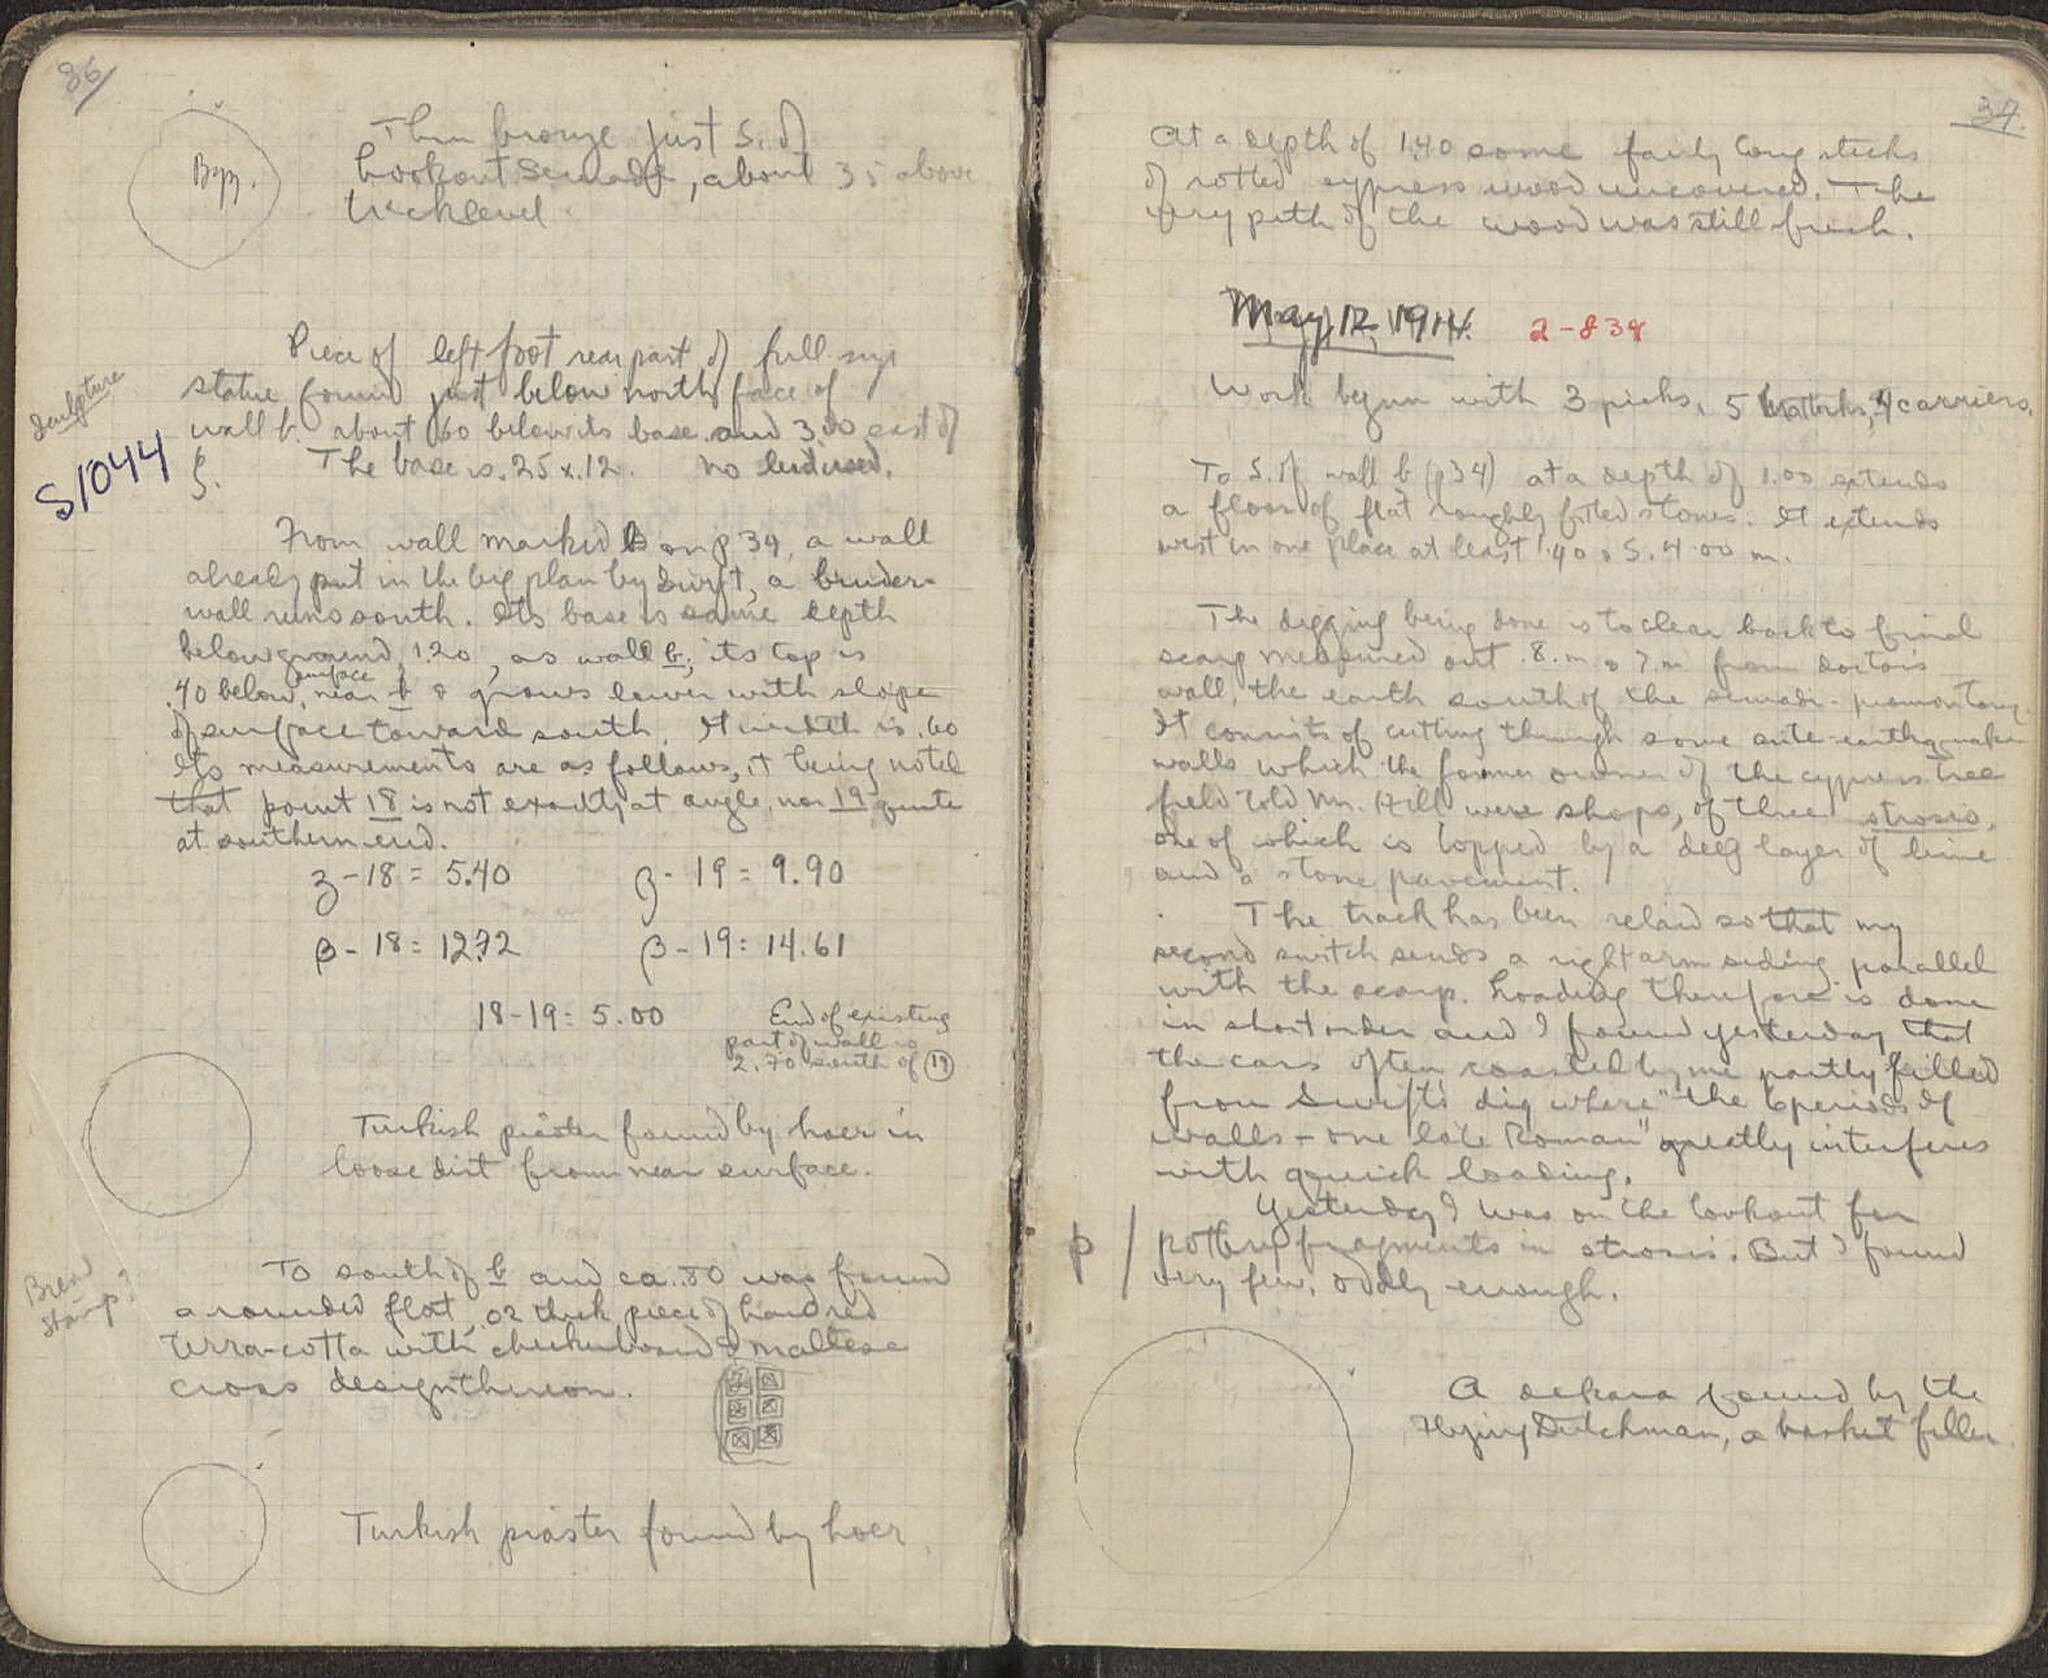 36/
Byz.
Thin bronze just S. of
Lookout Semadi, about 35 above
track level.
Sculpture
S1044
Piece of left foot rear part of full size
statue found just below north face of
wall b. about .60 below its base and 3.00 east of
ξ. The base is .25 x .12. no lead used.
From wall marked b on p 34, a wall
already put in the big plan by Swift, a
wall runs south. Its base is same depth
below ground, 1.20, as wall b; its top is
surface
.40 below, near b & grows lower with slope
of surface toward south. It width is .60
Its measurements are as follows, it being noted
that point 18 is not exactly at angle, nor 19 quite
at southern end.
3-18 = 5.40 3-19 = 9.90
β-18 = 12.72 β-19 = 14.61
18-19 = 5.00 End of existing
part of wall is
2.70 south of 19
Turkish piaster found by hoer in
loose dirt from near surface.
Bread
stamp?
To south of b and ca .80 was found
a rounded flat, .02 thick piece of hard red
terra-cotta with checkerboard & maltese
cross design thereon.
Turkish piaster found by hoer
37.
At a depth of 1.40 some fairly long sticks
of rotted cypress wood uncovered. The
very pith of the wood was still fresh.
May 12, 1914. 2-838
Work begun with 3 picks, 5 mattocks, 4 carriers.
To S. of wall b (p34) at a depth of 1.00 extends
a floor of flat roughly fitted stones. It extends
west in one place at least 1.40 & S. 4.00 m.
The digging being done is to clear back to final
scarp measured out .8.m & 7.m from doctor's
wall, the earth south of the semadi-promontory.
It consists of cutting through some ante-earthquake
walls which the former owner of the cypress tree
field told Mr. Hill were shops, of three strosis,
one of which is topped by a deep layer of lime
and a stone pavement.
The track has been relaid so that my
second switch sends a right arm siding parallel
with the scarp. Loading therefore is done
in short order and I found yesterday that
the cars often coasted by me partly filled
from Swift's dig where "the 6 periods of
walls - one late Roman" greatly interferes
with quick loading.
Yesterday I was on the lookout for
p/ pottery fragments in strosis. But I found
very few, oddly enough.
A dekara found by the
Flying Dutchman, a basket filler